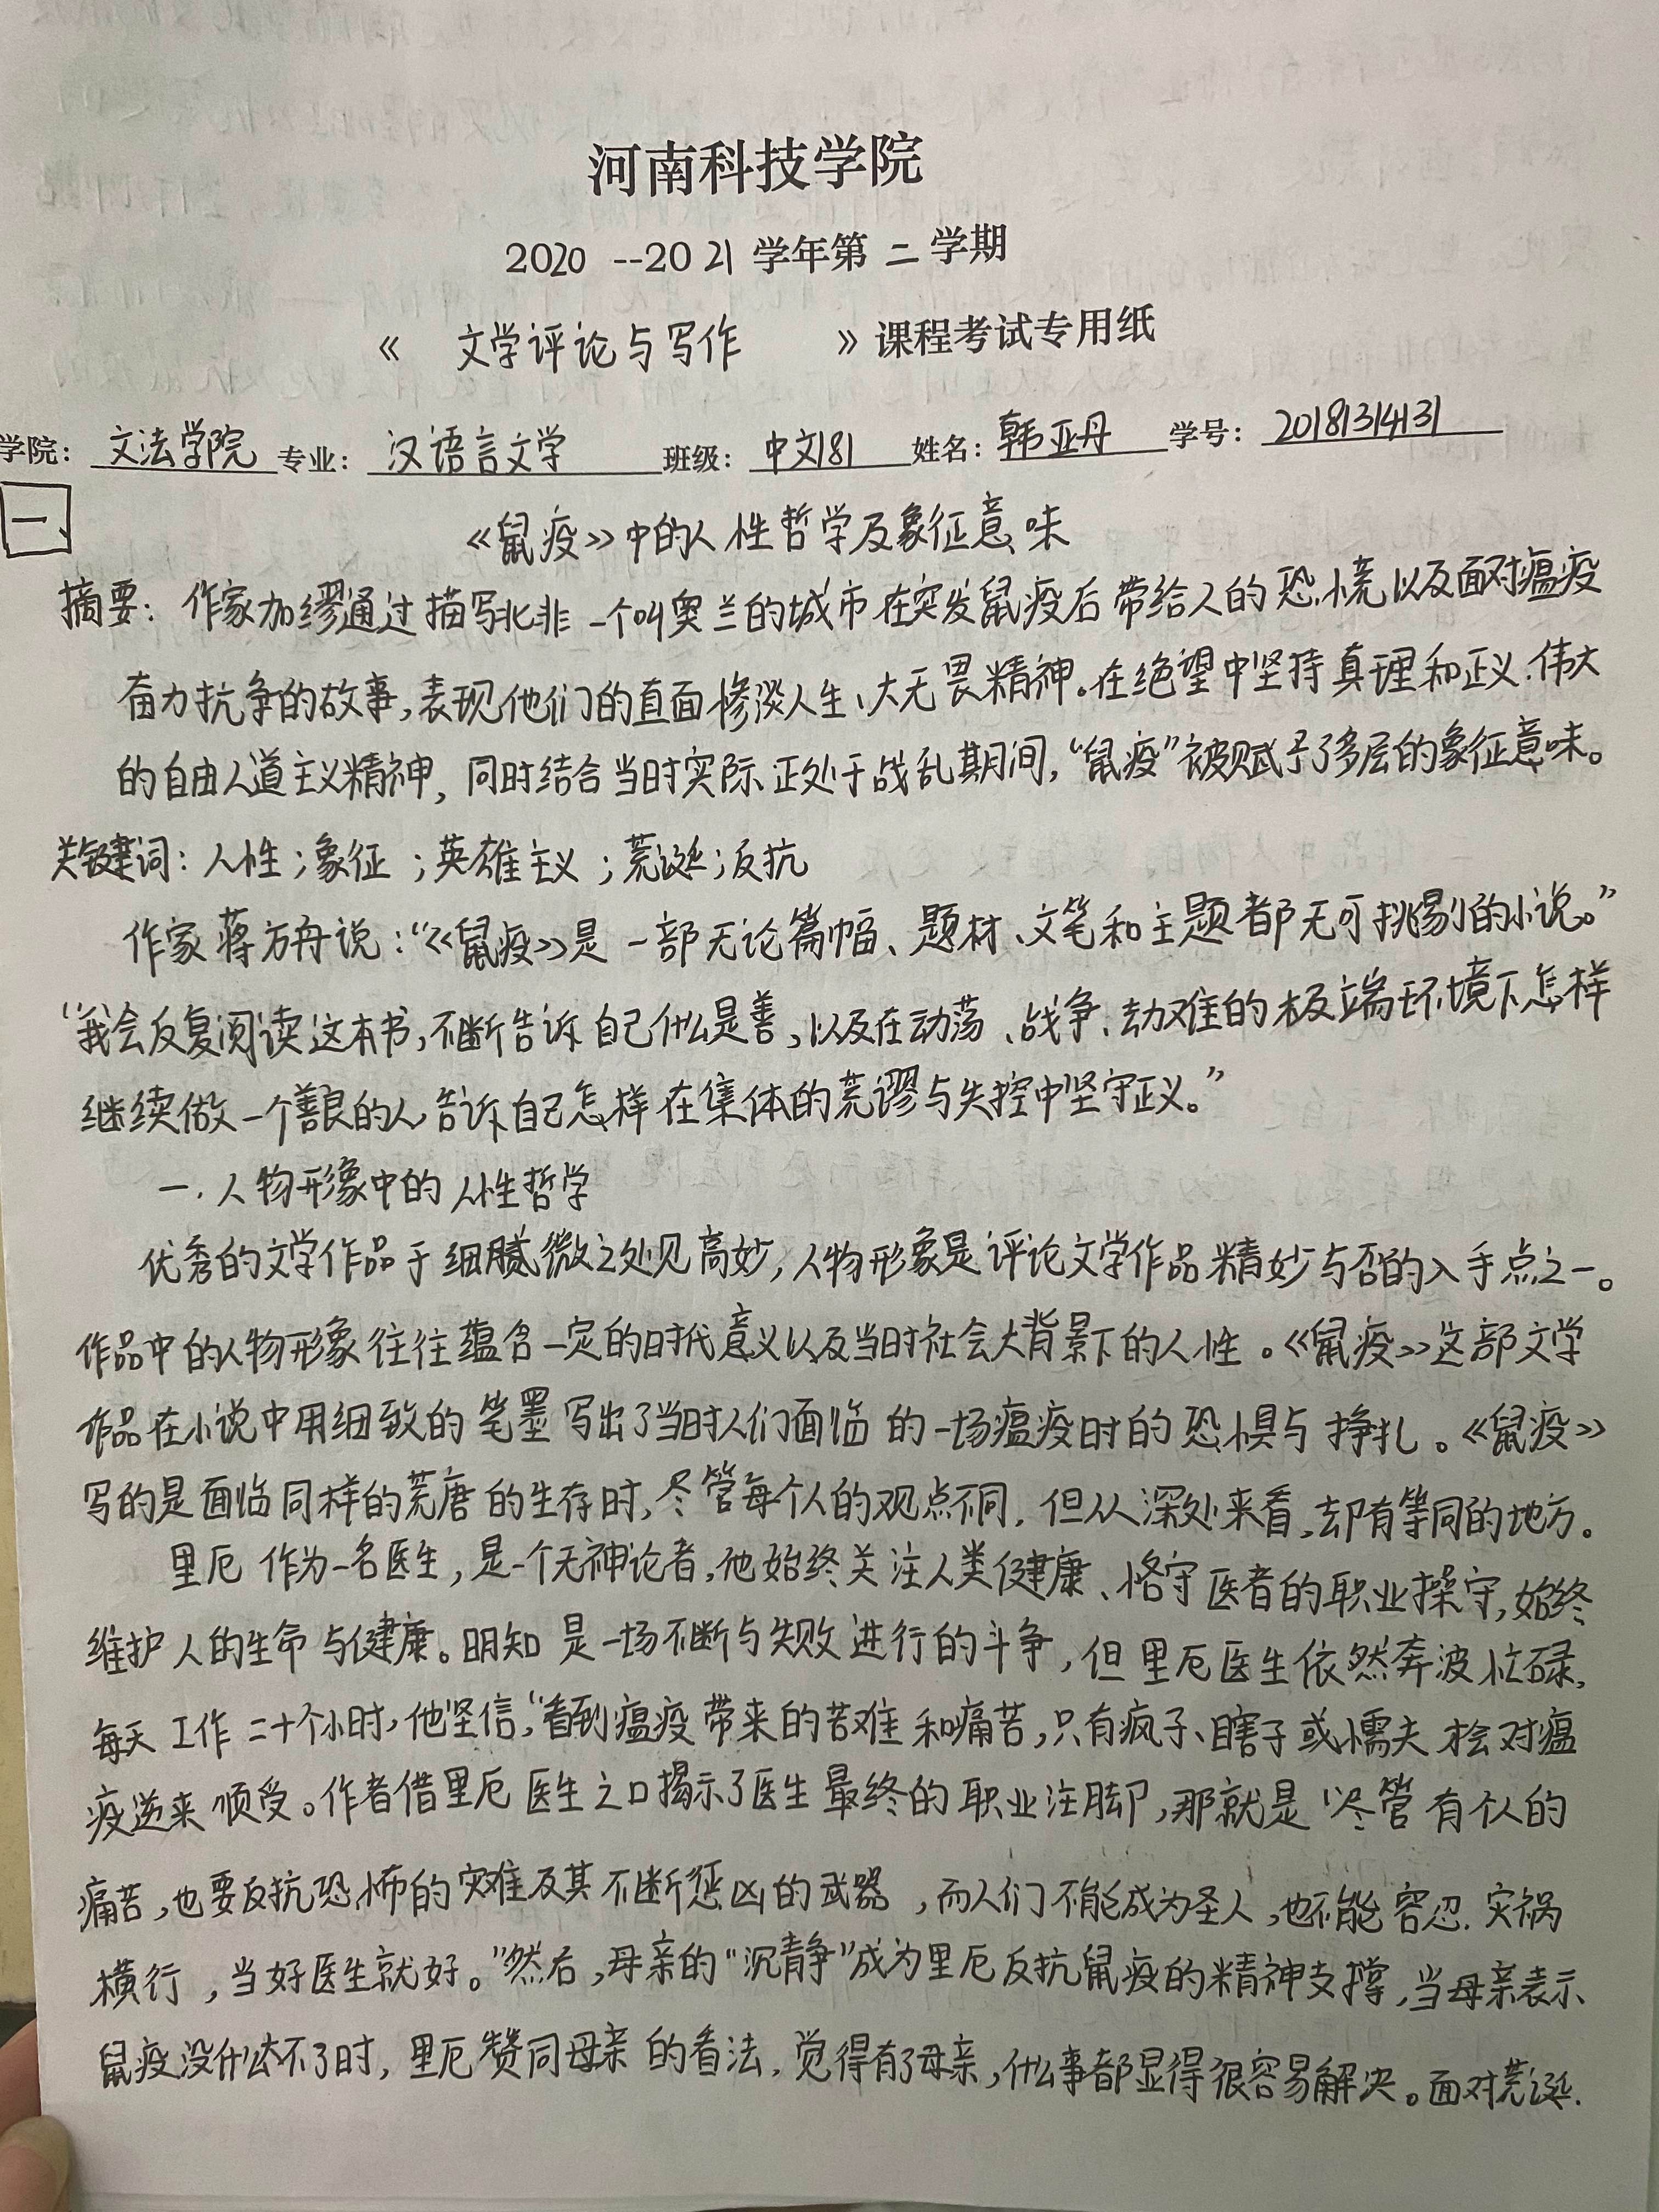 河南科技学院
2020 --2021 学年第 二 学期
《 文学评论与写作 》课程考试专用纸
学院：文法学院 专业：汉语言文学 班级：中文181 姓名：韩亚丹 学号：20181314131
一、
《鼠疫》中的人性哲学及象征意味
摘要：作家加缪通过描写北非一个叫奥兰的城市在突发鼠疫后带给人的恐慌以及面对瘟疫
奋力抗争的故事，表现他们的直面惨淡人生、大无畏精神。在绝望中坚持真理和正义.伟大
的自由人道主义精神，同时结合当时实际正处于战乱期间，“鼠疫”被赋予了多层的象征意味。
关键词：人性；象征；英雄主义；荒诞；反抗
作家蒋方舟说：“《鼠疫》是一部无论篇幅、题材、文笔和主题都无可挑剔的小说。”
“我会反复阅读这本书，不断告诉自己什么是善，以及在动荡、战争、劫难的极端环境下怎样
继续做一个善良的人告诉自己怎样在集体的荒谬与失控中坚守正义。”
一.人物形象中的人性哲学
优秀的文学作品于细腻微之处见高妙，人物形象是评论文学作品精妙与否的入手点之一。
作品中的人物形象往往蕴含一定的时代意义以及当时社会大背景下的人性。《鼠疫》这部文学
作品在小说中用细致的笔墨写出了当时人们面临的一场瘟疫时的恐惧与挣扎。《鼠疫》
写的是面临同样的荒唐的生存时，尽管每个人的观点不同，但从深处来看，却有等同的地方。
里厄作为一名医生，是一个无神论者，他始终关注人类健康、恪守医者的职业操守，始终
维护人的生命与健康。明知是一场不断与失败进行的斗争，但里厄医生依然奔波忙碌，
每天工作二十个小时，他坚信，“看到瘟疫带来的苦难和痛苦，只有疯子、瞎子或懦夫才会对瘟
疫逆来顺受。作者借里厄医生之口揭示了医生最终的职业注脚，那就是“尽管有个人的
痛苦，也要反抗恐怖的灾难及其不断惩凶的武器，而人们不能成为圣人，也不能容忍.灾祸
横行，当好医生就好。”然后，母亲的“沉静”成为里厄反抗鼠疫的精神支撑，当母亲表示
鼠疫没什么大不了时，里厄赞同母亲的看法，觉得有了母亲，什么事都显得很容易解决。面对荒诞.